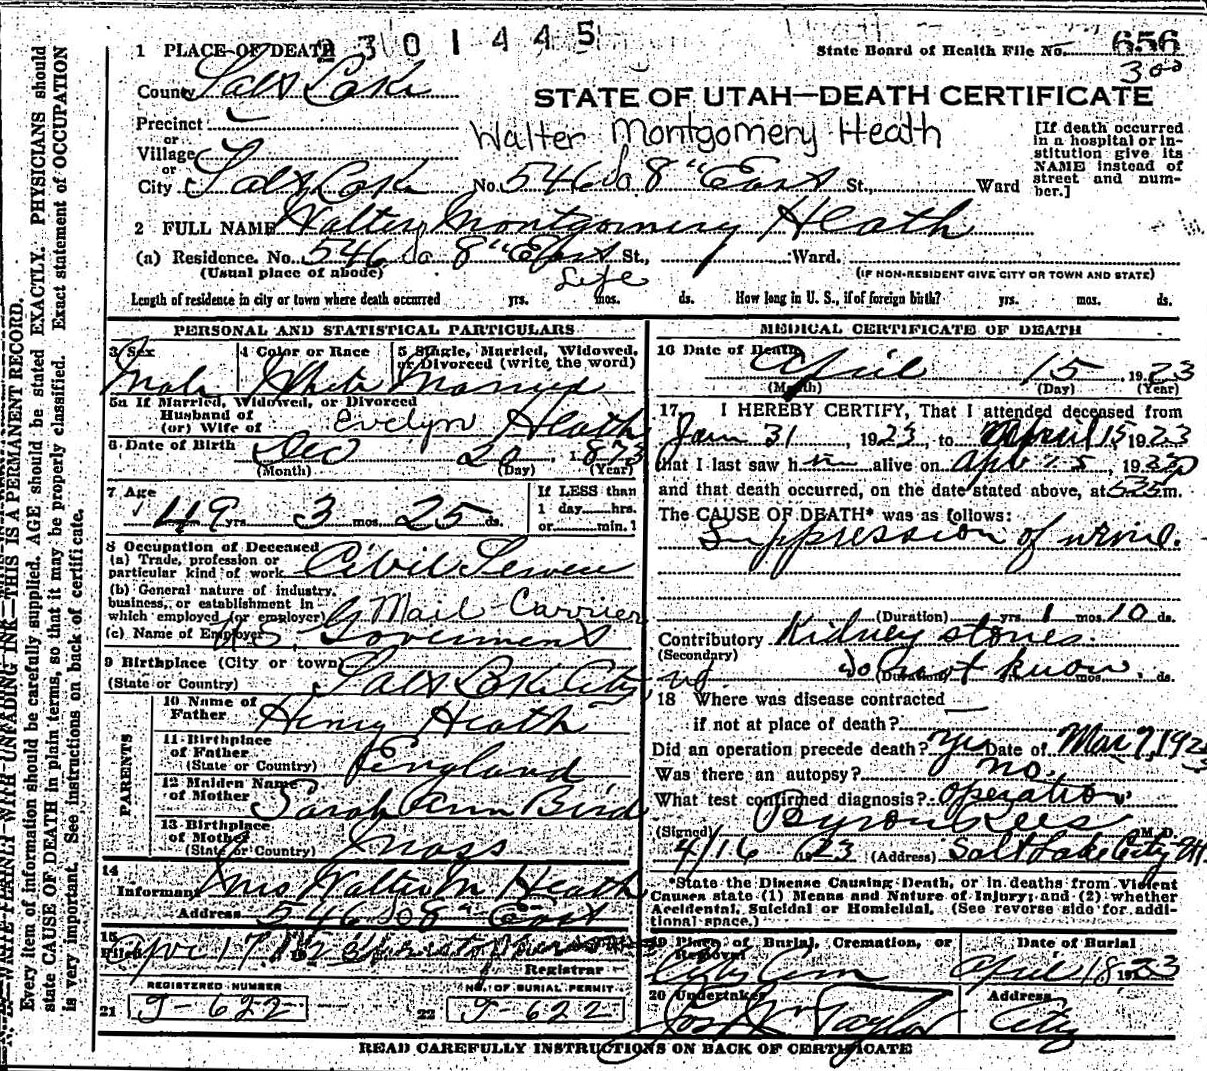 2301445
1 PLACE OF DEATH
State Board of Health File No. 656
300
County Salt Lake
STATE OF UTAH—DEATH CERTIFICATE
Precinct
or
Village
or
Walter Montgomery Heath
[If death occurred in a hospital or institution give its NAME instead of street and number.]
City Salt Lake No. 546 So 8" East St., Ward
2 FULL NAME Walter Montgomery Heath
(a) Residence. No. 546 So 8" East St., Ward.
(Usual place of abode) (IF NON-RESIDENT GIVE CITY OR TOWN AND STATE)
Life
Length of residence in city or town where death occurred yrs. mos. ds. How long in U. S., if of foreign birth? yrs. mos. ds.
PERSONAL AND STATISTICAL PARTICULARS
3 Sex
Male
4 Color or Race
White
5 Single, Married, Widowed, or Divorced (write the word)
Married
5a If Married, Widowed, or Divorced
Husband of
(or) Wife of Evelyn Heath
6 Date of Birth Dec 20, 1873
(Month) (Day) (Year)
7 Age
49 yrs. 3 mos. 25 ds.
If LESS than
1 day hrs.
or min. 1
8 Occupation of Deceased
(a) Trade, profession or
particular kind of work Civil Service
(b) General nature of industry,
business, or establishment in
which employed (or employer) Mail-Carrier
(c) Name of Employer U.S. Goverment
9 Birthplace (City or town)
(State or Country) Salt Lake City
PARENTS
10 Name of
Father Henry Heath
11 Birthplace
of Father
(State or Country) England
12 Maiden Name
of Mother Sarah Ann Bird
13 Birthplace
of Mother
(State or Country) Mass
14
Informant Mrs Walter M Heath
Address 546 So 8" East
15
Filed Apr 17
Registrar
REGISTERED NUMBER
21 J-622
NO. OF BURIAL PERMIT
22 J-622
MEDICAL CERTIFICATE OF DEATH
16 Date of Death
April 15, 1923
(Month) (Day) (Year)
17 I HEREBY CERTIFY, That I attended deceased from
Jan 31, 1923, to April 15 1923
that I last saw him alive on Apr 15, 1923
and that death occurred, on the date stated above, at 525 p m.
The CAUSE OF DEATH* was as follows:
Suppression of urine.
(Duration) yrs. 1 mos. 10 ds.
Contributory Kidney stones.
(Secondary)
(Duration) Do not know mos. ds.
18 Where was disease contracted
if not at place of death?
Did an operation precede death? Yes Date of Mar 7, 1923
Was there an autopsy? no.
What test confirmed diagnosis? Operation
(Signed) Byron Rees M. D.
4/16 1923 (Address) Salt Lake City Ut
*State the Disease Causing Death, or in deaths from Violent
Causes state (1) Means and Nature of Injury; and (2) whether
Accidental, Suicidal or Homicidal. (See reverse side for additional space.)
19 Place of Burial, Cremation, or
Removal
City Cem
Date of Burial
April 18 1923
20 Undertaker
Jos Wm Taylor
Address
City
READ CAREFULLY INSTRUCTIONS ON BACK OF CERTIFICATE
N. B.—WRITE PLAINLY WITH UNFADING INK—THIS IS A PERMANENT RECORD.
Every item of information should be carefully supplied. AGE should be stated EXACTLY. PHYSICIANS should
state CAUSE OF DEATH in plain terms, so that it may be properly classified. Exact statement of OCCUPATION
is very important. See instructions on back of certificate.